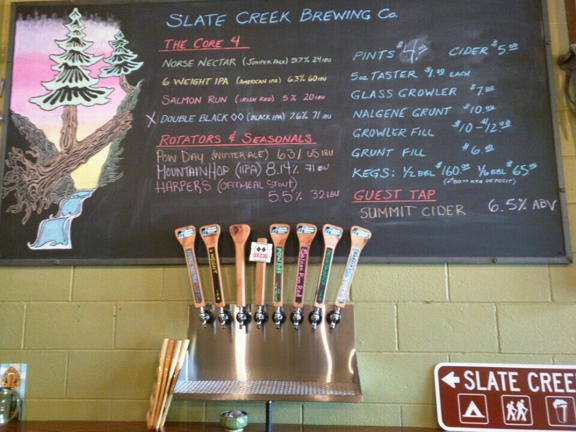 SLATE CREEK BREWING CO.
THE CORE 4
NORSE NECTAR (JUNIPER PALE) 5.7% 24 IBU
6 WEIGHT IPA (AMERICAN IPA) 6.3% 60 IBU
SALMON RUN (IRISH RED) 5% 20 IBU
X DOUBLE BLACK ◊◊ (BLACK IPA) 7.6% 71 IBU
ROTATORS & SEASONALS
POW DAY (WINTER ALE) 6.3/ 45 IBU
MOUNTAIN HOP (IPA) 8.14% 71 IBU
HARPERS (OATMEAL STOUT)
5.5% 32 IBU
PINTS $4 CIDER $5
5oz TASTER EACH
GLASS GROWLER $7
NALGENE GRUNT $10
GROWLER FILL $10-$12
GRUNT FILL $6
KEGS: 1/2 BBL $160 1/6 BBL $65
GUEST TAP
SUMMIT CIDER 6.5% ABV
SLATE CREE